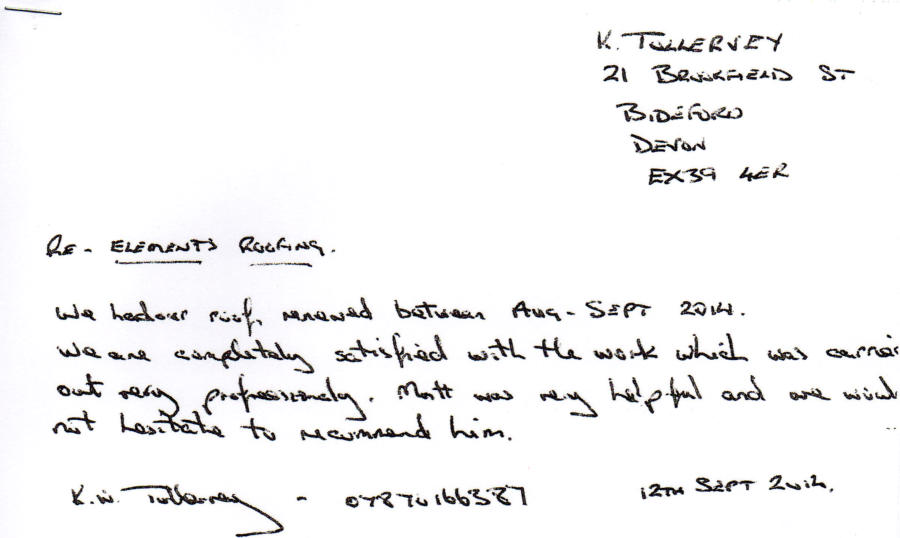 K. TULLERVEY
21 BROOKFIELD ST
BIDEFORD
DEVON
EX39 4ER
RE - ELEMENTS ROOFING.
We had our roof, renewed between Aug - SEPT 2014.
We are completely satisfied with the work which was carrie
out very professionaly. Matt was very helpful and we woul
not hesitate to recommend him.
K.W. Tullervey - 07870166387 12TH SEPT 2014.